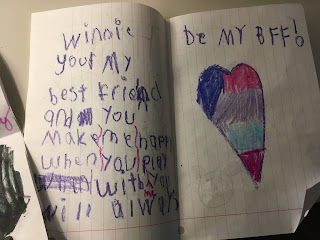 Winnie
your My
best friend
and you
make me happy
when you play
with you
will always
be MY BFF!